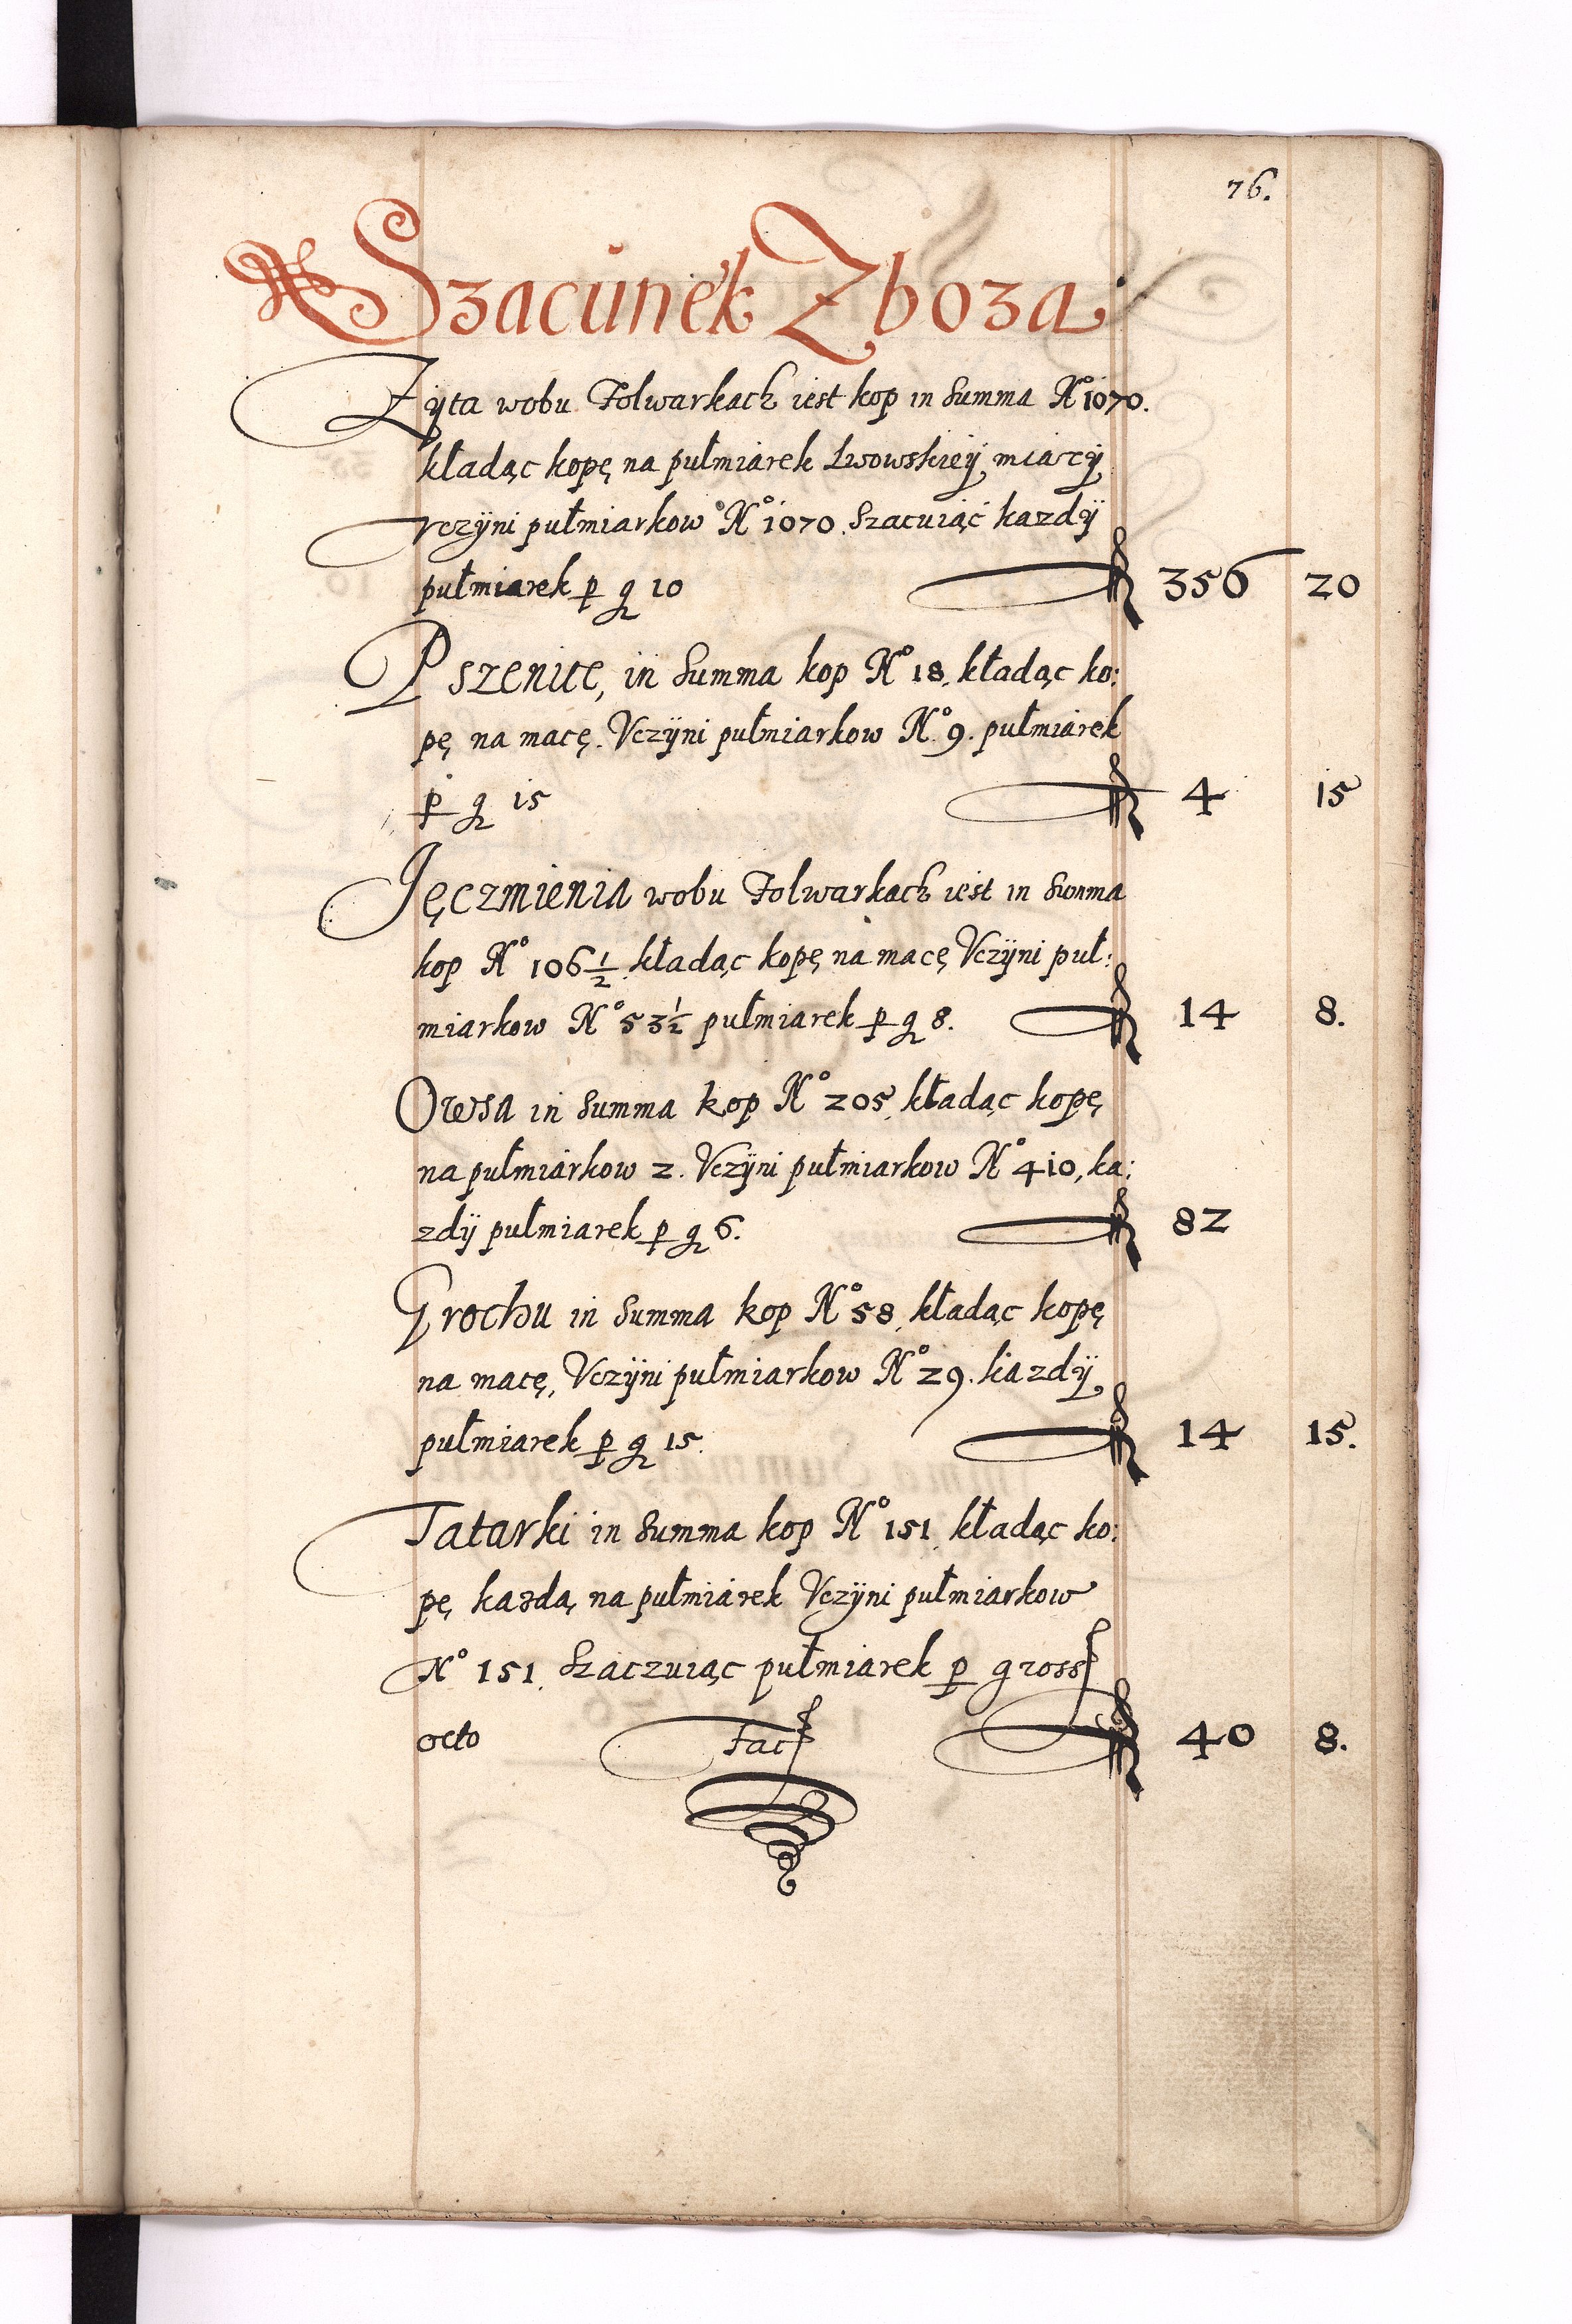 76.
Szacunek Zboza
Zyta wobu Folwarkach iest kop in Summa No 1070.
kładąc kopę na pułmiarek Lwowskieÿ miarÿ
vczÿni pułmiarkow No 1070. Szacuiąc kazdÿ
pułmiarek p g 10 356 20
Pszenice, in Summa kop No 18. kładąc ko:
pę na macę. Vczÿni pułmiarkow No. 9. pułmiarek
p g 15 4 15
Jęczmienia wobu Folwarkach iest in Summa
kop No 106 1/2 kładąc kopę na macę Vczÿni puł:
miarkow No 53 1/2 pułmiarek p g 8. 14 8.
Owsa in Summa kop No 205, kładąc kopę
na pułmiarkow 2. Vczÿni pułmiarkow No 410, ka:
zdÿ pułmiarek p g 6. 82
Grochu in Summa kop No 58, kładąc kopę
na macę, Vczÿni pułmiarkow No 29. kazdÿ
pułmiarek p g 15. 14 15.
Tatarki in Summa kop No 151, kładąc ko:
pę kazdą na pułmiarek Vczÿni pułmiarkow
No 151. Szaczuiąc pułmiarek p gross
octo Fac 40 8.